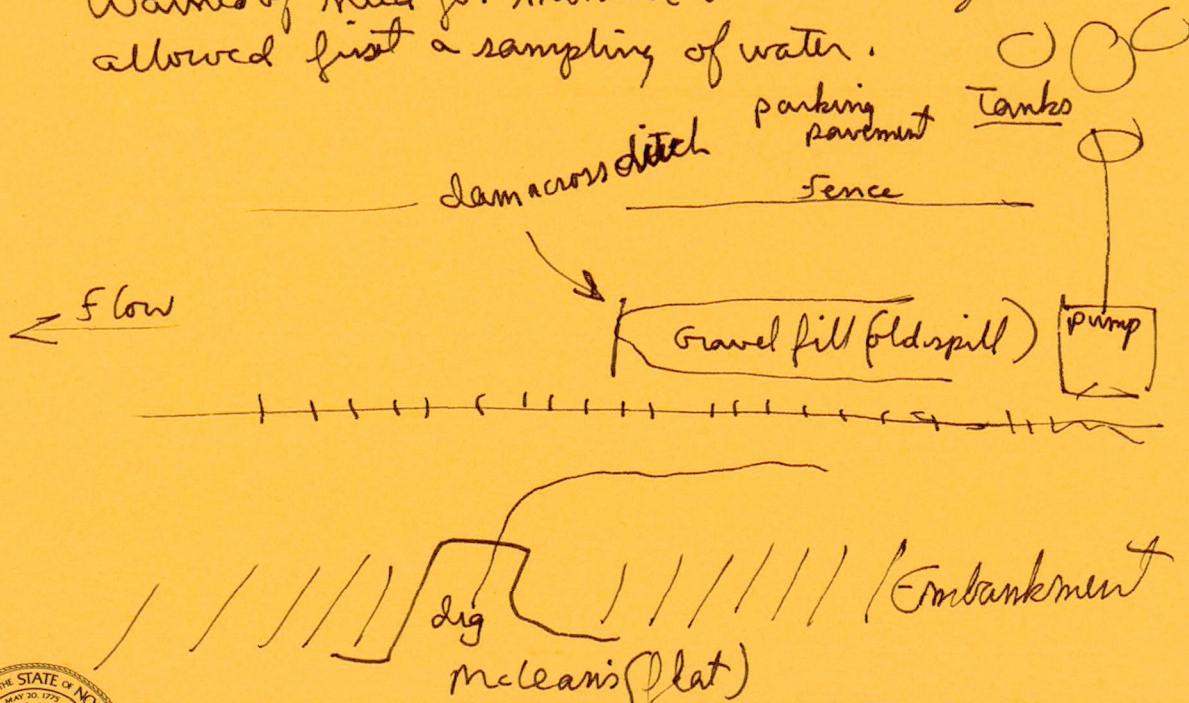 allowed first a sampling of water.
parking
pavement
Tanks
dam across ditch
fence
Flow
Gravel fill (old spill)
pump
dig
Embankment
McLean's (flat)
THE STATE OF NO
MAY 20, 1775